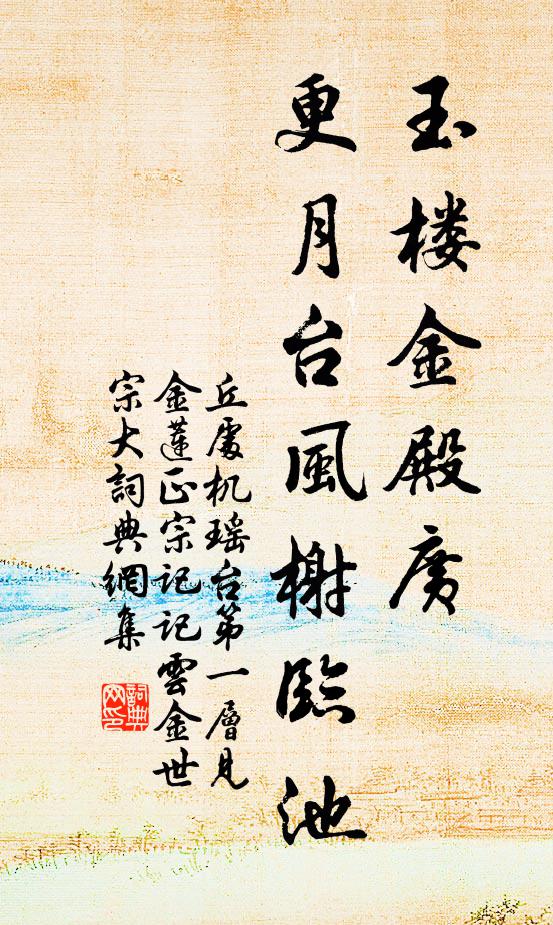 玉楼金殿廣
更月台風榭臨池
丘處机瑶台第一層見
金蓮正宗記記雲金世
宗大詞典網集
詞典
网印